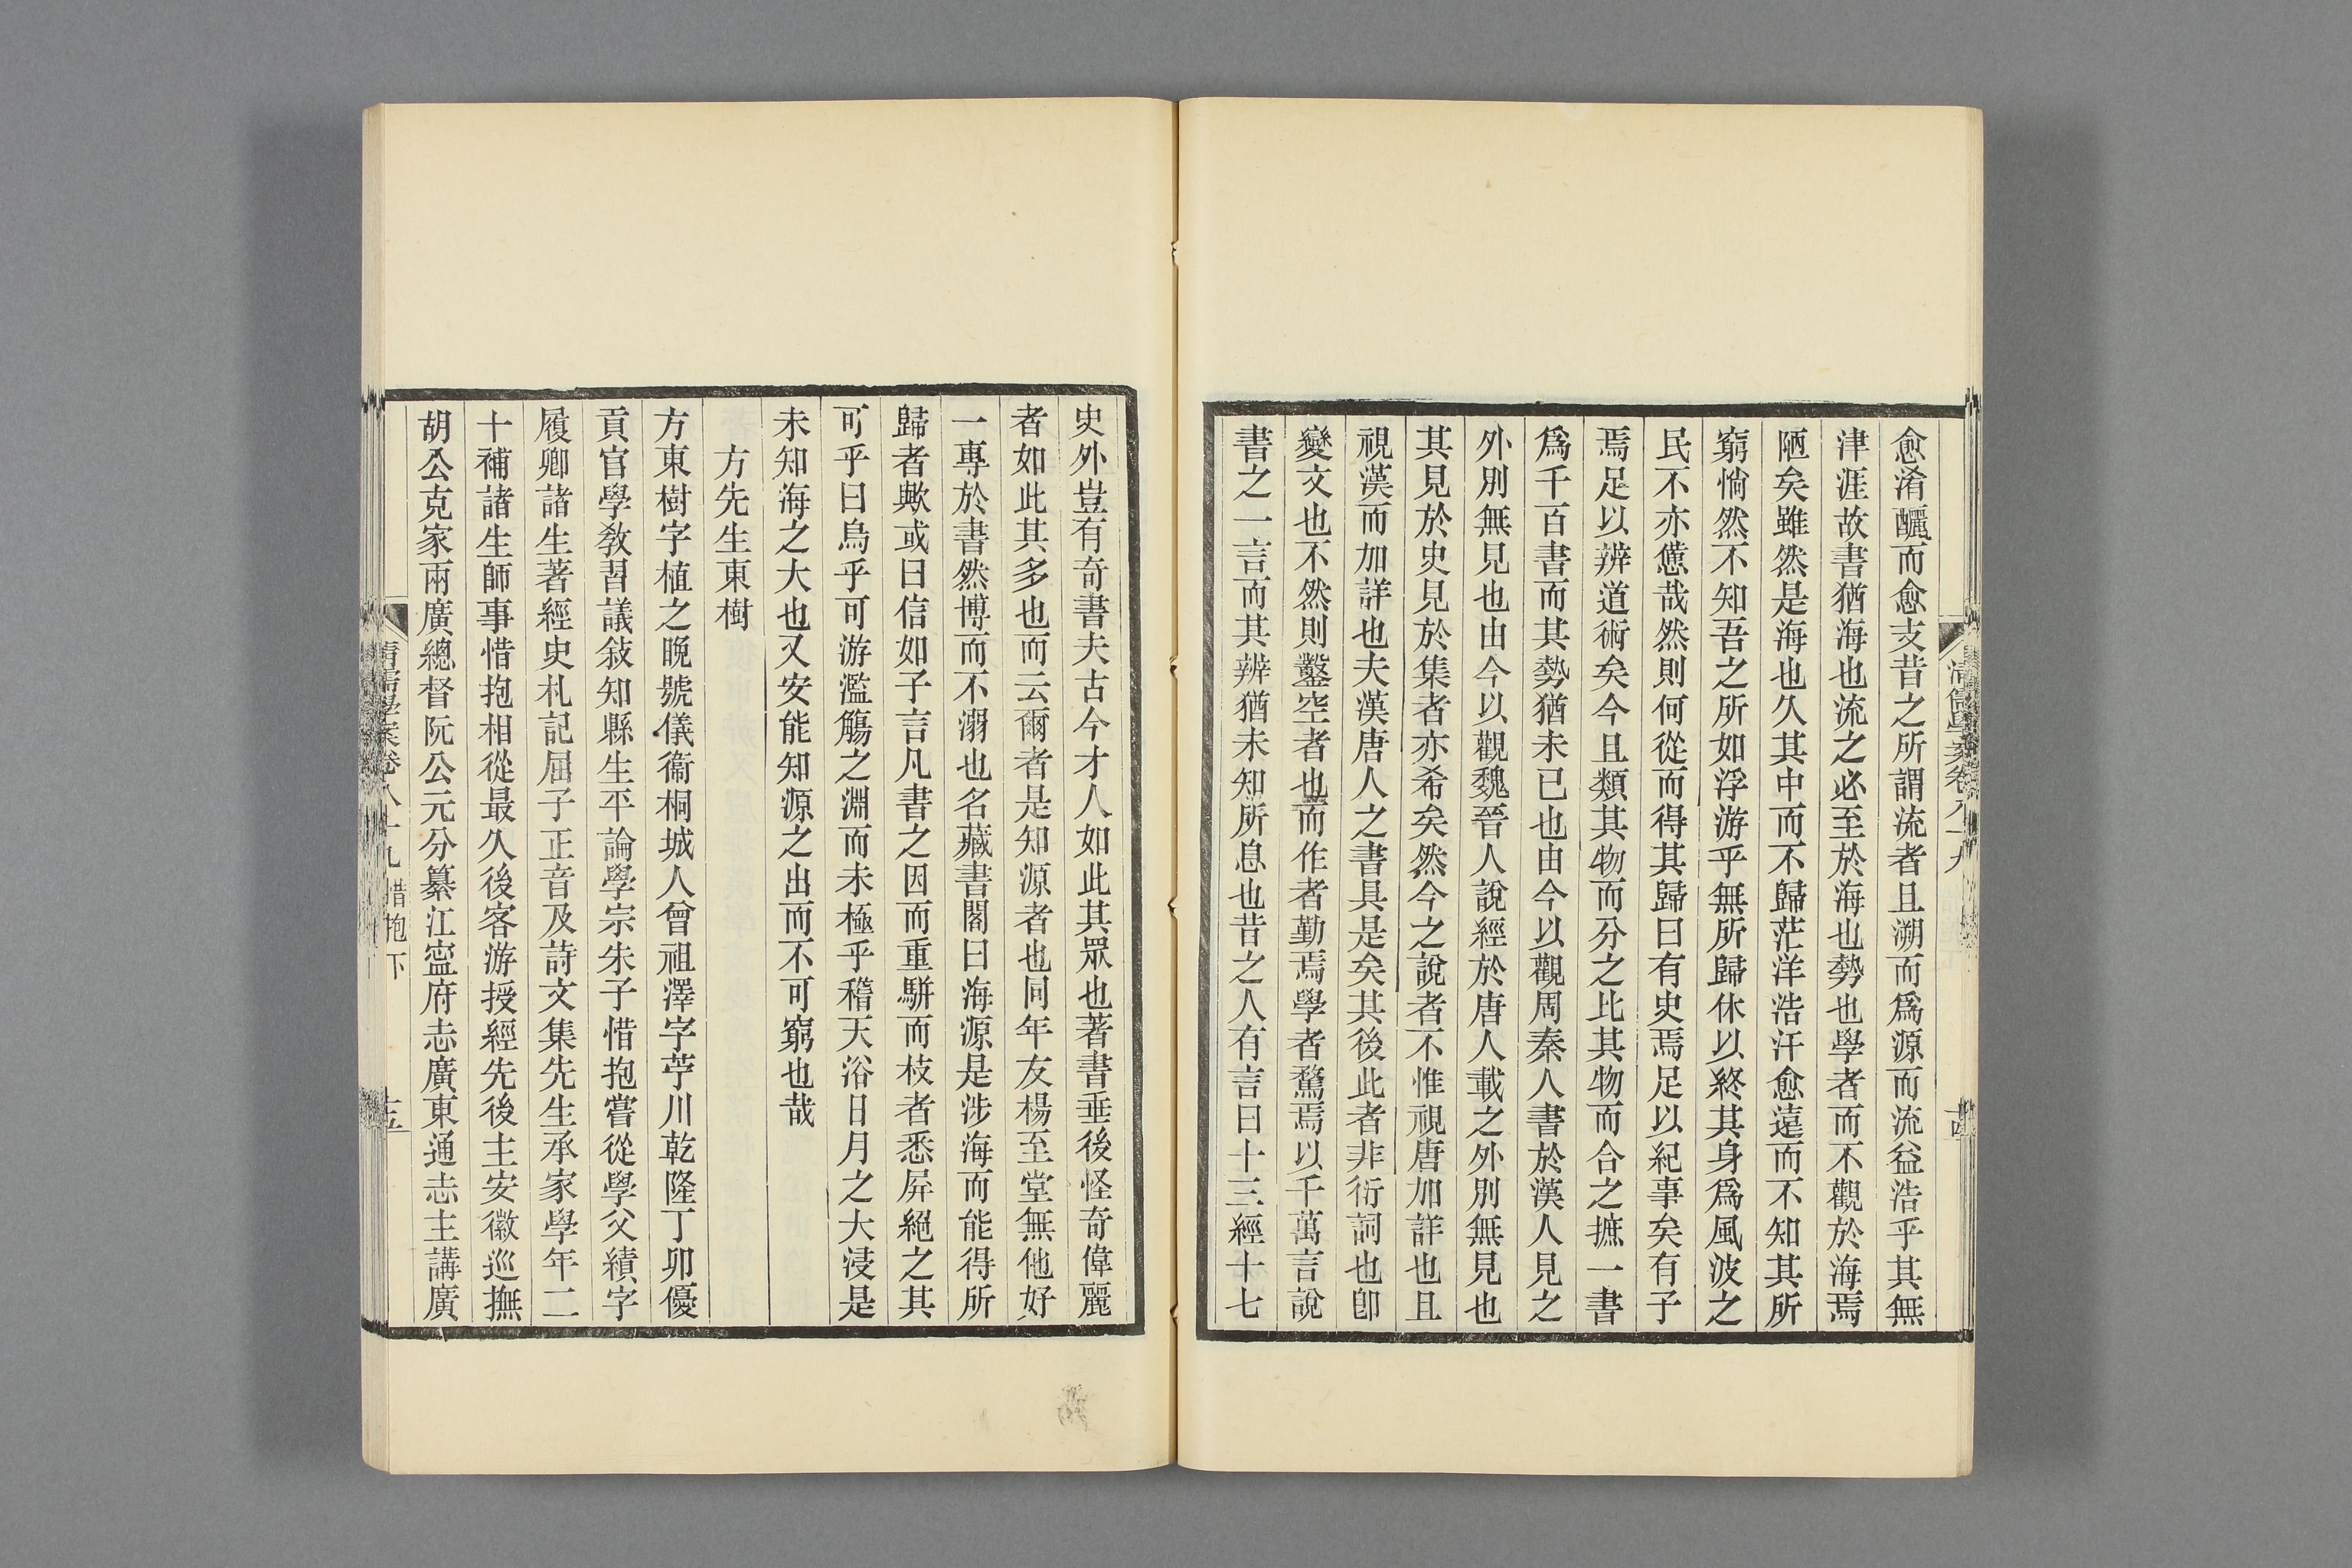 愈淆釃而愈支昔之所謂流者且溯而爲源而流益浩乎其無
津涯故書猶海也流之必至於海也勢也學者而不觀於海焉
陋矣雖然是海也久其中而不歸茫洋浩汗愈遠而不知其所
窮惝然不知吾之所如浮游乎無所歸休以終其身爲風波之
民不亦僿哉然則何從而得其歸曰有史焉足以紀事矣有子
焉足以辨道術矣今且類其物而分之比其物而合之摭一書
爲千百書而其勢猶未已也由今以觀周秦人書於漢人見之
外別無見也由今以觀魏晉人說經於唐人載之外別無見也
其見於史見於集者亦希矣然今之說者不惟視唐加詳也且
視漢而加詳也夫漢唐人之書具是矣其後此者非衍詞也卽
變文也不然則鑿空者也而作者勤焉學者騖焉以千萬言說
書之一言而其辨猶未知所息也昔之人有言曰十三經十七
清儒學案卷八十九
十四
史外豈有奇書夫古今才人如此其眾也著書垂後怪奇偉麗
者如此其多也而云爾者是知源者也同年友楊至堂無他好
一專於書然博而不溺也名藏書閣曰海源是涉海而能得所
歸者歟或曰信如子言凡書之因而重駢而枝者悉屏絕之其
可乎曰烏乎可游濫觴之淵而未極乎稽天浴日月之大浸是
未知海之大也又安能知源之出而不可窮也哉
方先生東樹
方東樹字植之晚號儀衞桐城人曾祖澤字苧川乾隆丁卯優
貢官學教習議敍知縣生平論學宗朱子惜抱嘗從學父績字
履卿諸生著經史札記屈子正音及詩文集先生承家學年二
十補諸生師事惜抱相從最久後客游授經先後主安徽巡撫
胡公克家兩廣總督阮公元分纂江寍府志廣東通志主講廣
清儒學案卷八十九 惜抱下
十五